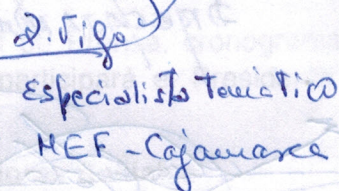 R. Vigo
Especialista temático
MEF - Cajamarca